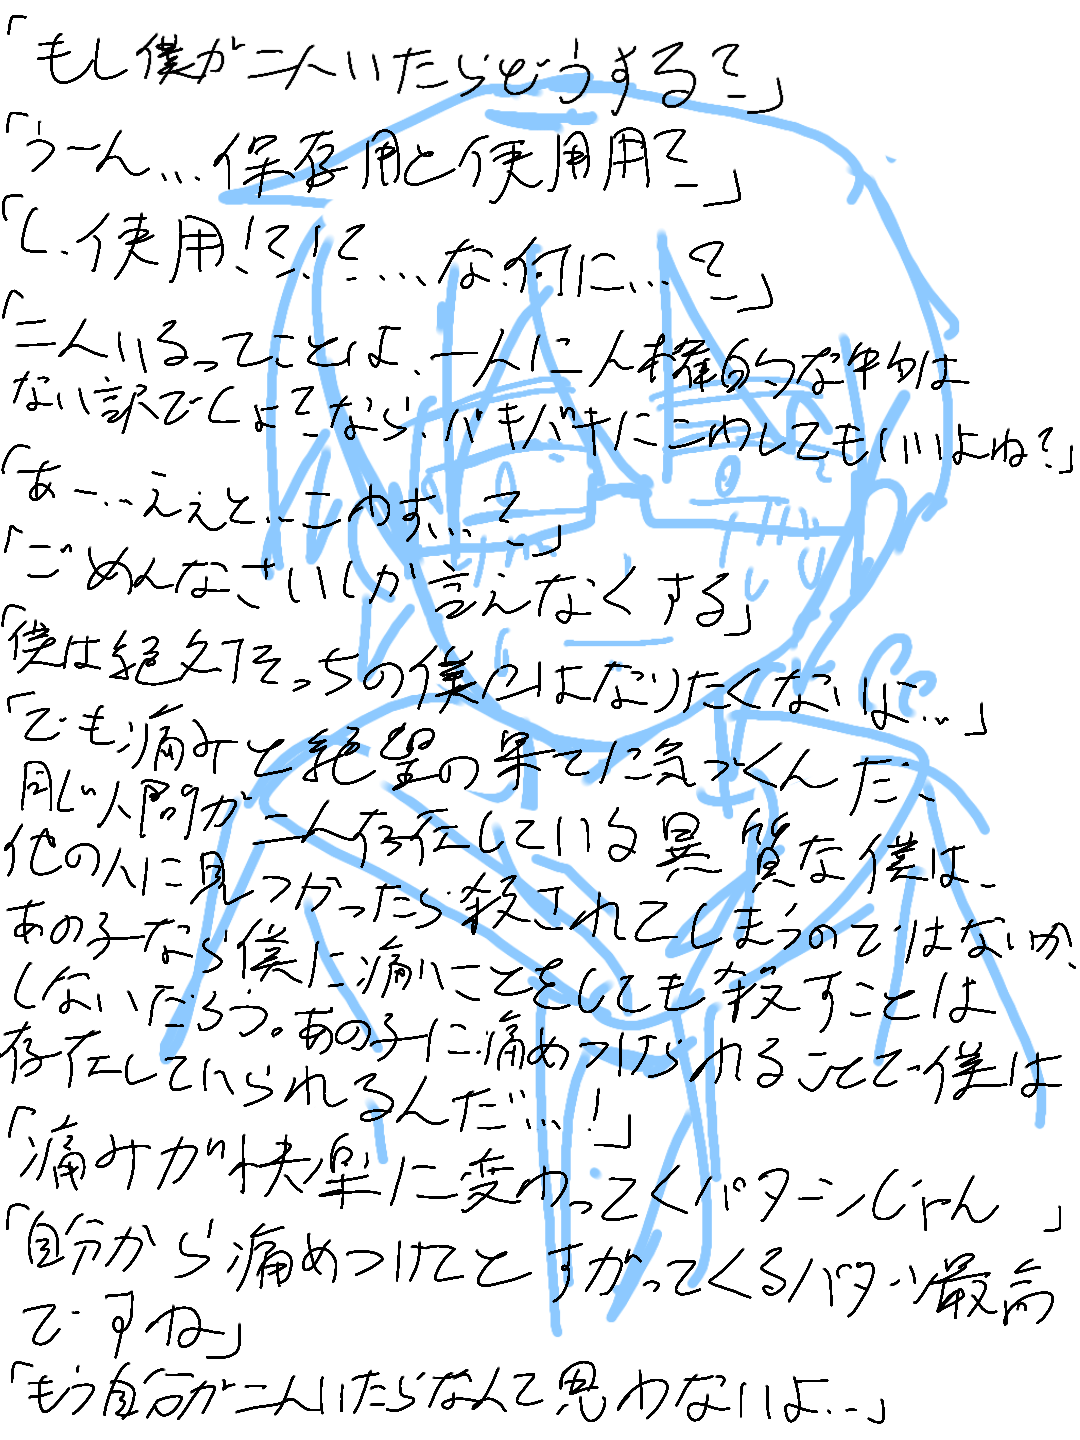 「もし僕が二人いたらどうする?」
「うーん...保存用と使用用?」
「し、使用!?!?...な、何に...?」
「二人いるってことは、一人に人権的な物は
ない訳でしょ?なら、バキバキにこわしてもいいよね?」
「あー...ええと...こわす...て」
「ごめんなさいしか言えなくする」
「僕は絶対そっちの僕にはなりたくないは...」
「でも痛みと絶望の果てに気づくんだ、
同じ人間が二人存在している異質な僕は、
他の人に見つかったら殺されてしまうのではないか、
あの子なら僕に痛いことをしても殺すことは
しないだろう。あの子に痛めつけられることで僕は
存在していられるんだ...!」
「痛みが快楽に変わってくパターンじゃん」
「自分から痛めつけてとすがってくるパターン最高
ですね」
「もう自分が二人いたらなんて思わないよ...」